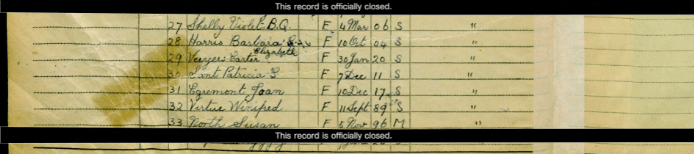 This record is officially closed.
27 Shelly Violet B.Q. F 4 Mar 06 S "
28 Harris Barbara F 10 Oct 04 S "
Elizabeth
29 Carter F 30 Jan 20 S
30 Sant Patricia G F 7 Dec 11 S
31 Egremont Joan F 10 Dec 17 S "
32 Virtue Winifred F 11 Sept 89 S "
33 North Susan F 5 Nov 96 M "
This record is officially closed.